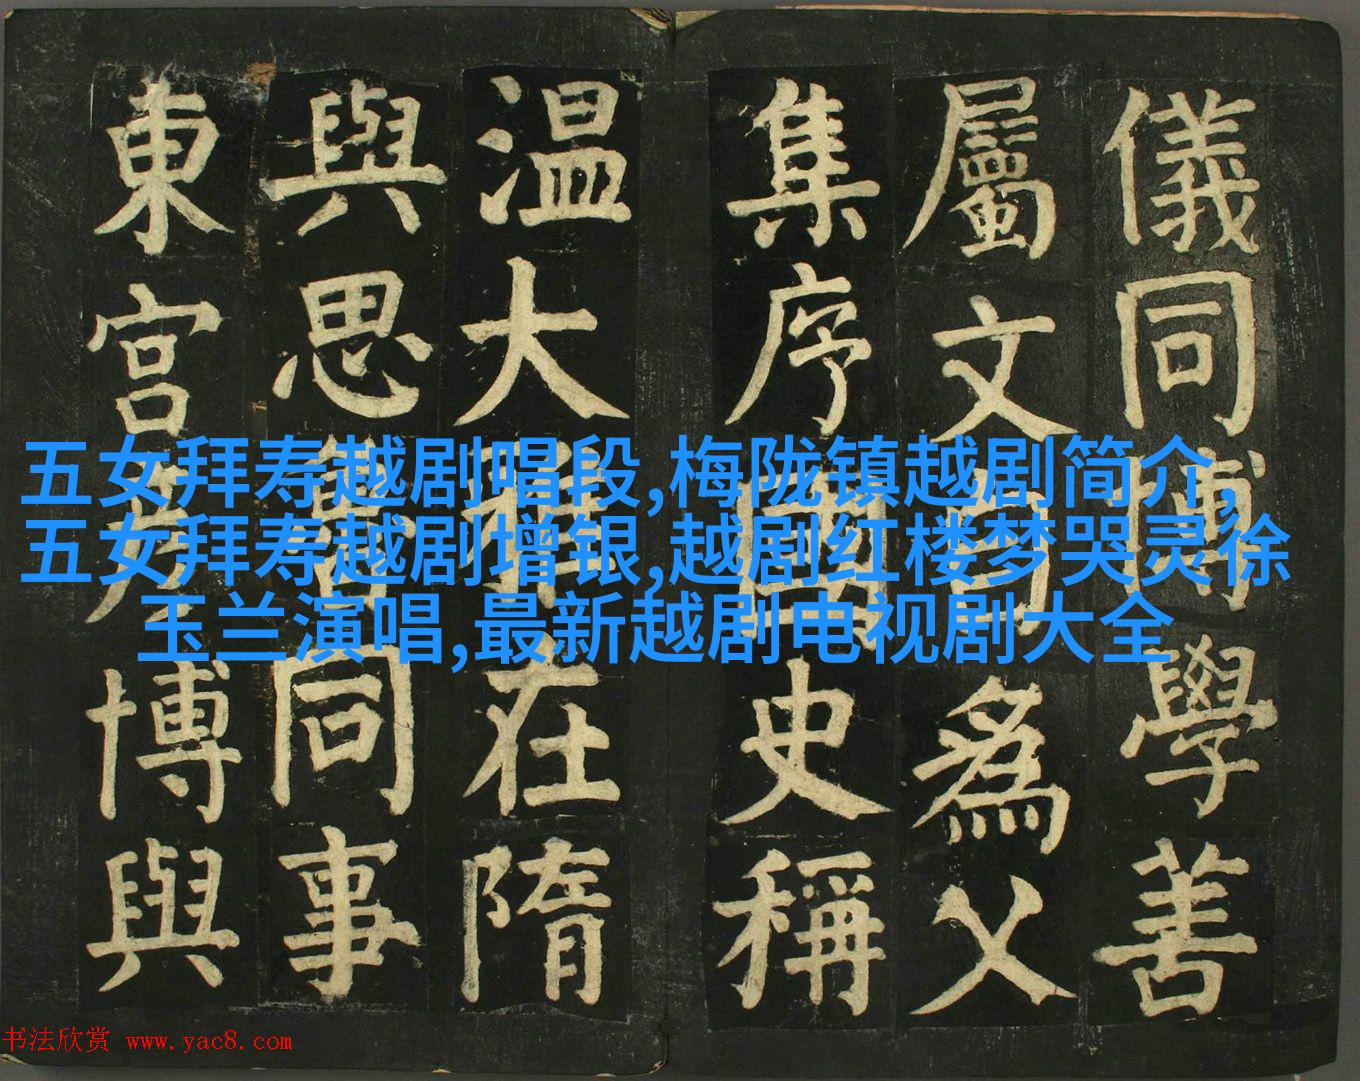 儀同學善
屬文爲父
集序史稱
温大在隋
與思同事
東宮博與
五女拜寿越剧唱段,梅陇镇越剧简介,
五女拜寿越剧增银,越剧红楼梦哭灵徐
玉兰演唱,最新越剧电视剧大全
书法欣赏 www.yac8.com